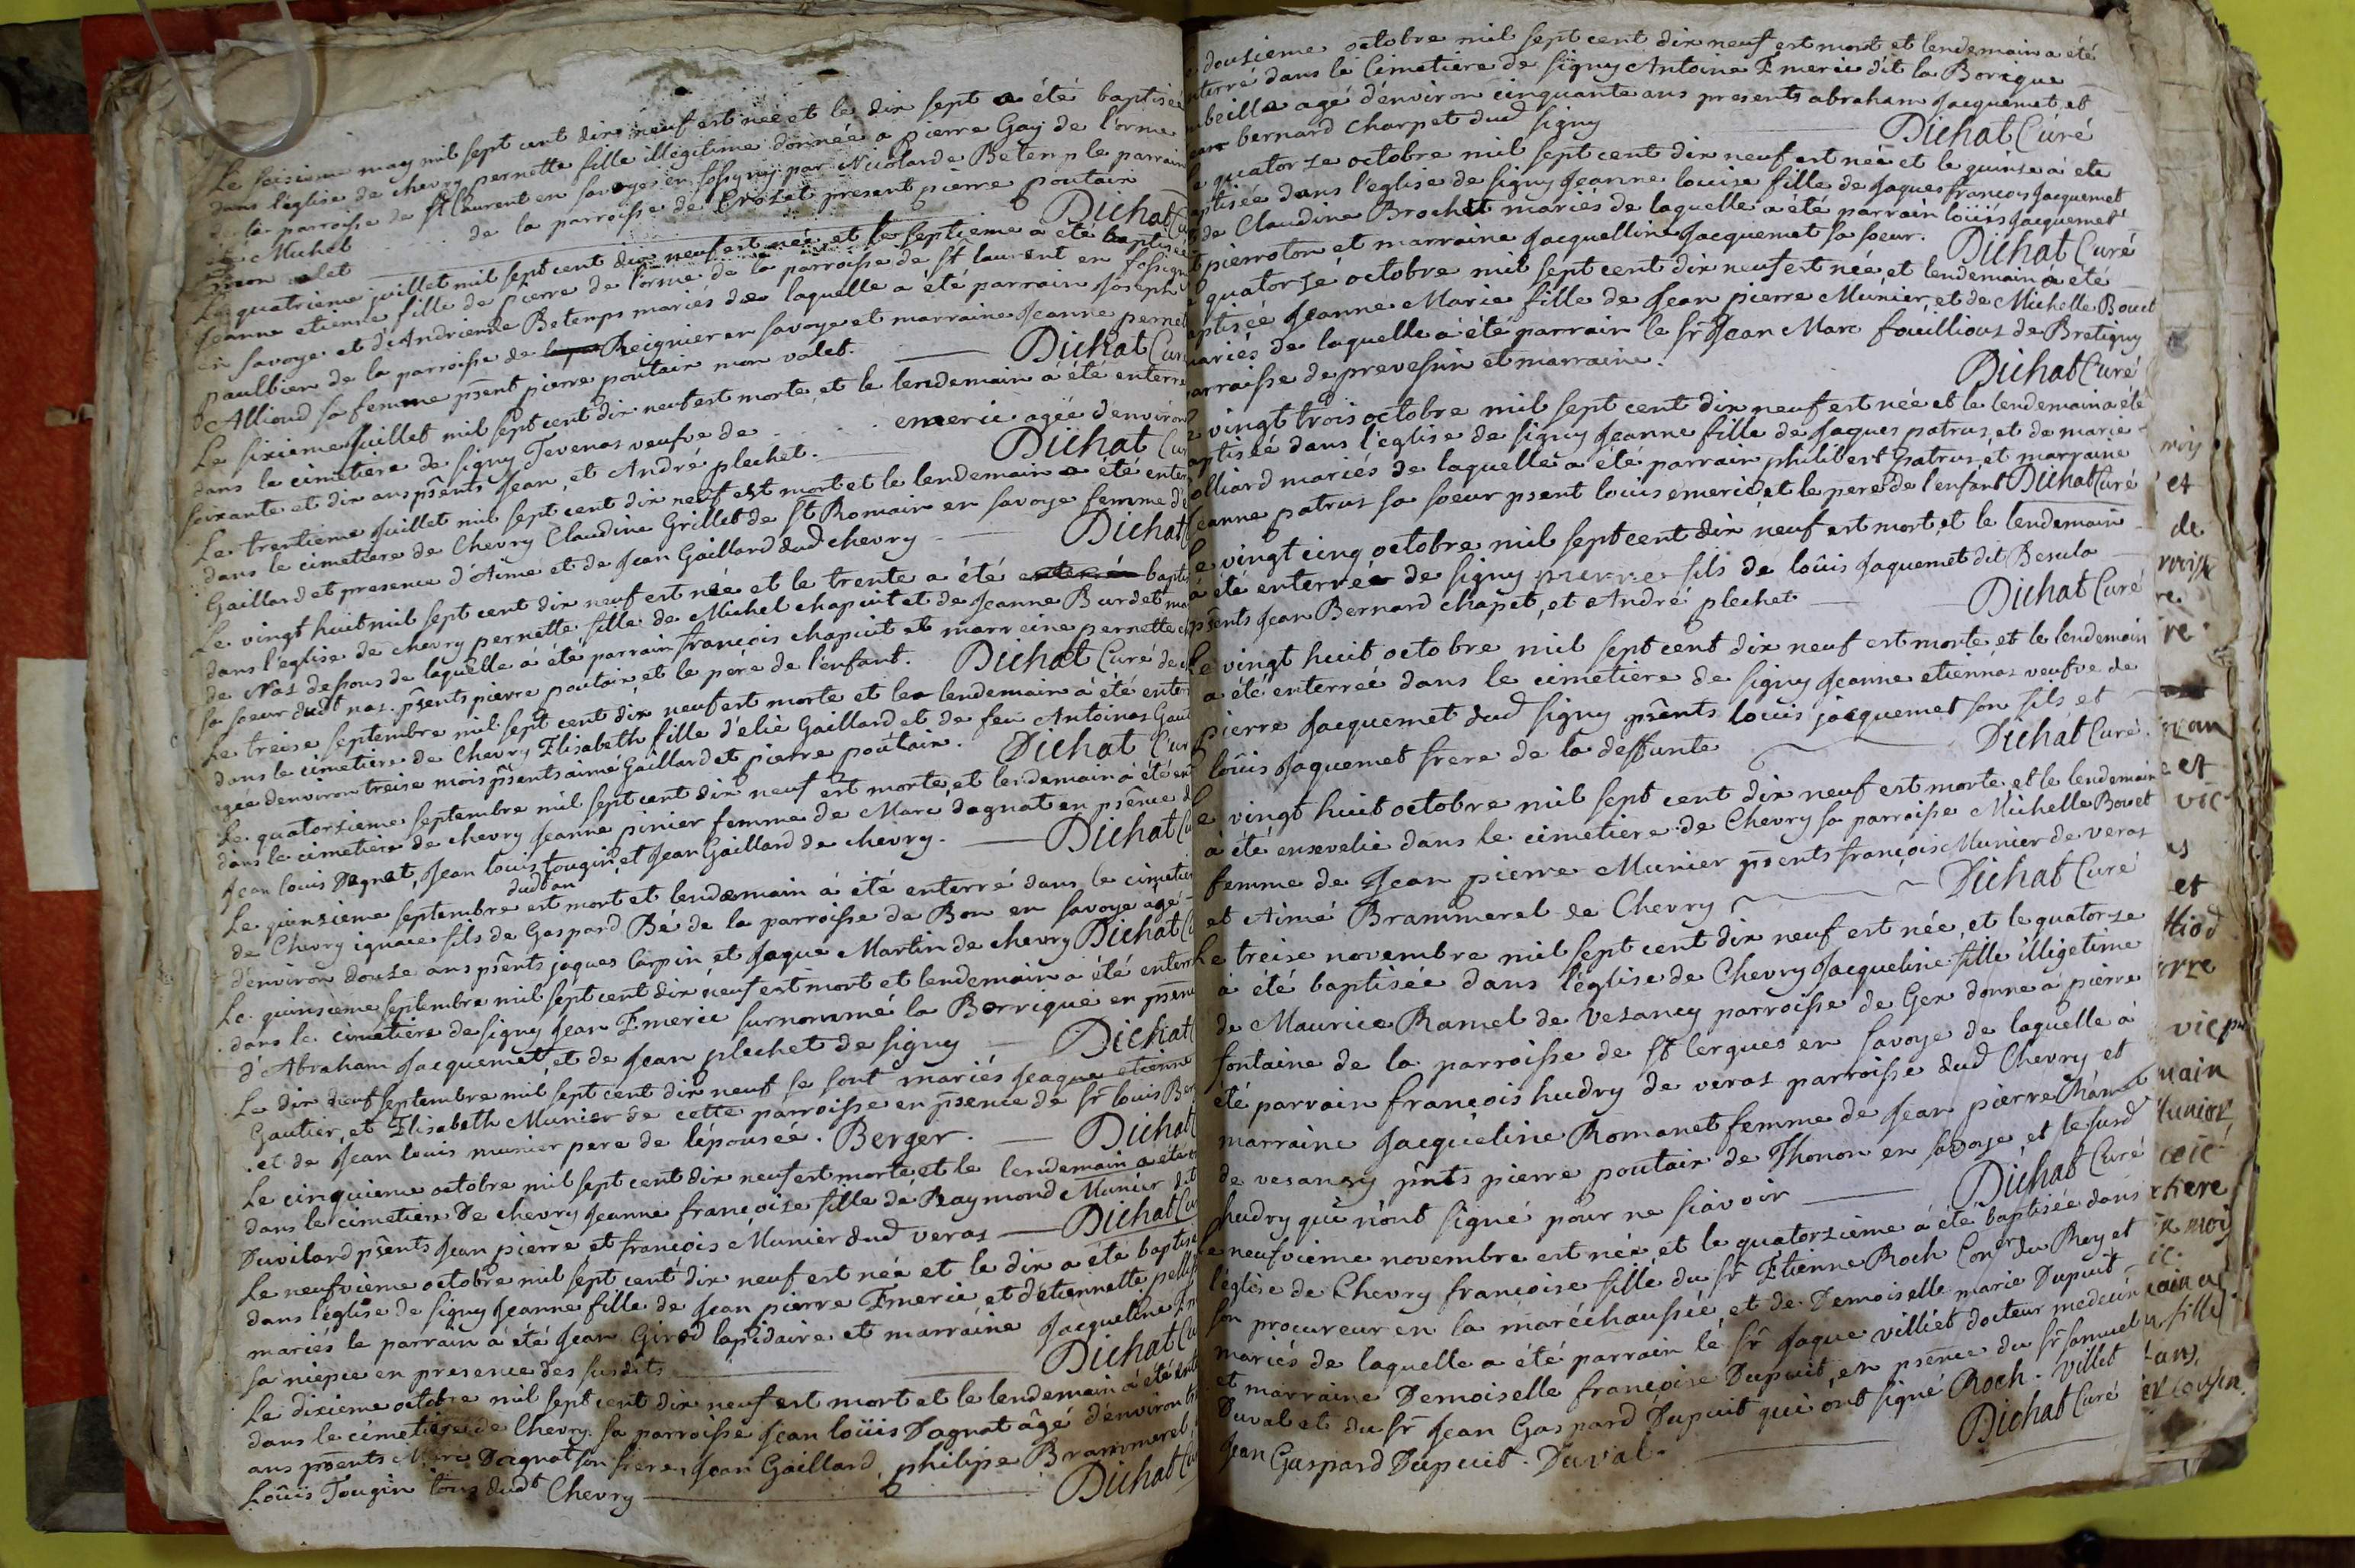 Le seisieme may mil sept cent dix neuf est née et le dix sept a été baptisée
dans l'église de chevry pernette fille illégitime donnée a pierre Gay de l'orme
de la parroisse de St laurent en savoye en fossigny par Nicolarde Betemp le parrain
été Michel de la parroisse de Crozet present pierre poutain
mon valet Dichat Cu
Le quatrieme juillet mil sept cent dix neuf est née et le septieme a été baptisée
Jeanne etienne fille de pierre de l'orme de la parroisse de St laurent en fossigny
en savoye et d'Andrienne Betemps mariés de laquelle a été parrain Joseph
paulbien de la parroisse de Reignier en savoye et marraine Jeanne pernet
d'Alliaud sa femme psent pierre poutain mon valet. Dichat Cur
Le sixieme Juillet mil sept cent dix neuf est morte, et le lendemain a été enterre
dans le cimetiere de signy Tevenas veufve de emerie agée d'environ
soixante et dix ans psents Jean, et André plechet. Dichat Cur
Le trentieme Juillet mil sept cent dix neuf est mort et le lendemain a été enter
dans le cimetiere de Chevry Claudine Grillet de St Romain en savoye femme de
Gaillard et presence d'Aime et de Jean Gaillard dud chevry Dichat
Le vingt huit mil sept cent dix neuf est née et le trente a été enterrée baptis
dans l'eglise de chevry pernette fille de Michel chapuit et de Jeanne Burdet ma
de Nas dessous de laquelle a été parrain françois chapuit et marreine pernette
sa soeur dudt nas. psents pierre poutain et le pere de l'enfant. Dichat Curé de
Le treise septembre mil sept cent dix neuf est morte et le lendemain a été enter
dans le cimetiere de Chevry Elisabeth fille d'elie Gaillard et de feu Antoinas Gau
agée d'environ treise mois psents aimé Gaillard et pierre poutain. Dichat Cur
Le quatorsieme septembre mil sept cent dix neuf est morte, et lendemain a été en
dans le cimetiere de chevry Jeanne pinier femme de Marc dagnat en psence d
Jean louis Dagnat, Jean louis Tougin, et Jean Gaillard de chevry. Dichat Cu
dudt an
Le quinsieme septembre est mort et lendemain a été enterré dans le cimetier
de Chevry ignace fils de Gaspard Bé de la parroisse de Bon en savoye agé
d'environ douse ans psents jaques Carpin et Jaque Martin de chevry Dichat C
Le quinsieme septembre mil sept cent dix neuf est mort et lendemain a été enterr
dans le cimetiere de signy Jean Emerie surnommé la Borrique en psenc
d'Abraham Jacquemet, et de Jean plechet de signy Dichat
Le dix neuf septembre mil sept cent dix neuf se sont mariés Jeaque etienne
Gautier, et Elisabeth Munier de cette parroisse en psence de Sr louis Ber
et de Jean louis munier pere de l'épousée. Berger. Dichat
Le cinquieme octobre mil sept cent dix neuf est morte et le lendemain a été
dans le cimetiere De chevry Jeanne françoise fille de Raymond Munier dit
Duvilard psents Jean pierre et françois Munier dud veras Dichat Cu
Le neufvieme octobre mil sept cent dix neuf est née et le dix a été baptis
dans l'église de signy Jeanne fille de Jean pierre Emerie et d'étiennette pell
mariés le parrain a été Jean Girod lapidaire et marraine Jacqueline
sa niepce en presence des susdits Dichat Cu
Le dixieme octobre mil sept cent dix neuf est mort et le lendemain a été ent
dans le cimetiere de Chevry sa parroisse Jean loüis Dagnat âgé d'environ
ans psents Marc Dagnat son frere, Jean Gaillard, philipe Brammerel,
Loüis Tougin tous dudt Chevry Dichat Cu
dousieme octobre mil sept cent dix neuf est mort et lendemain a été
terré dans le Cimetiere de signy Antoine Emerie dit la Borrique
beille agé d'environ cinquante ans presents abraham Jacquemet, et
bernard charpet dud signy Dichat Curé
quatorze octobre mil sept cent dix neuf est née et le quinse a été
ptisée dans l'eglise de signy Jeanne louise fille de Jaques françois Jacquemet
de Claudine Brochet mariés de laquelle a été parrain loüis Jacquemet
pierroton et marraine Jacquelline Jacquemet sa soeur. Dichat Curé
quatorse octobre mil sept cent dix neuf est née et lendemain a été
ptisée Jeanne Marie fille de Jean pierre Munier, et de Michelle Bouet
ariés de laquelle a été parrain le Sr Jean Marc fouillious de Bretigny
arroisse de prevessin et marraine. Dichat Curé
vingt trois octobre mil sept cent dix neuf est née et le lendemain a été
ptisée dans l'église de signy Jeanne fille de Jaques patrus, et de marie
olliard mariés de laquelle a été parrain philibert patrus, et marraine
eanne patrus sa soeur psent louis emerie et le pere de l'enfant Dichat Curé
Le vingt cinq octobre mil sept cent dix neuf est mort, et le lendemain
a été enterrée de signy pierre fils de loüis Jaquemet dit Besula
psents Jean Bernard chapet, et André plechet Dichat Curé
Le vingt huit octobre mil sept cent dix neuf est morte, et le lendemain
a été enterreé dans le cimetiere de signy Jeanne etiennas veufve de
pierre Jacquemet dud signy psents louis jacquemet son fils et
loüis Jaquemet frere de la deffunte Dichat Curé.
Le vingt huit octobre mil sept cent dix neuf est morte, et le lendemain
a été ensevelie dans le cimetiere de Chevry sa parroisse Michelle Bouet
femme de Jean pierre Munier psents françois Munier de veras
et Aimé Brammerel de Chevry Dichat Curé
Le treise novembre mil sept cent dix neuf est née, et le quatorse
a été baptisée dans l'église de Chevry Jacqueline fille illigetime
de Maurice Ramel de Vesancy parroisse de Gex donne a pierre
fontaine de la parroisse de St Cergues en savoye de laquelle a
été parrain françois hudry de veras parroisse dud Chevry et
marraine Jacqueline Romanet femme de Jean pierre Ramel
de vesancy pnts pierre poutain de Thonon en savoye et le susd
hudry qui n'ont signé pour ne sçavoir Dichat Curé
Le neufvieme novembre est née, et le quatorsieme a été baptisée dans
l'église de Chevry françoise fille du Sr Etienne Roch Conr du Roy et
son procureur en la maréchaussée, et de Demoiselle marie Dupuit
mariés de laquelle a été parrain le Sr Jaque villiet docteur medecin
et marraine Demoiselle françoise Dupuit, en psence du Sr samuel
Duval et du Sr Jean Gaspard Dupuit qui ont signé Roch. Villet
Jean Gaspard Dupuit. Duval. Dichat Curé